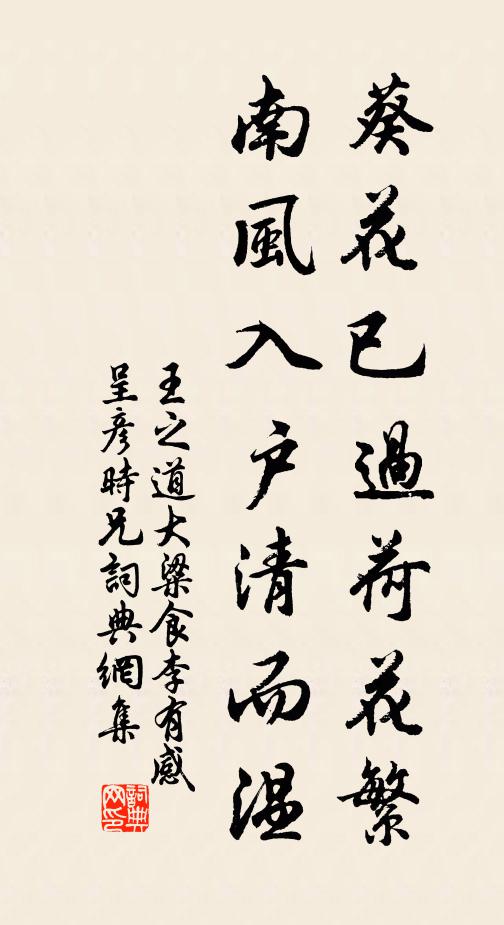 葵花已過荷花繁
南風入户清而温
王之道大梁食李有感
呈彦時兄詞典網集
詞典
网印